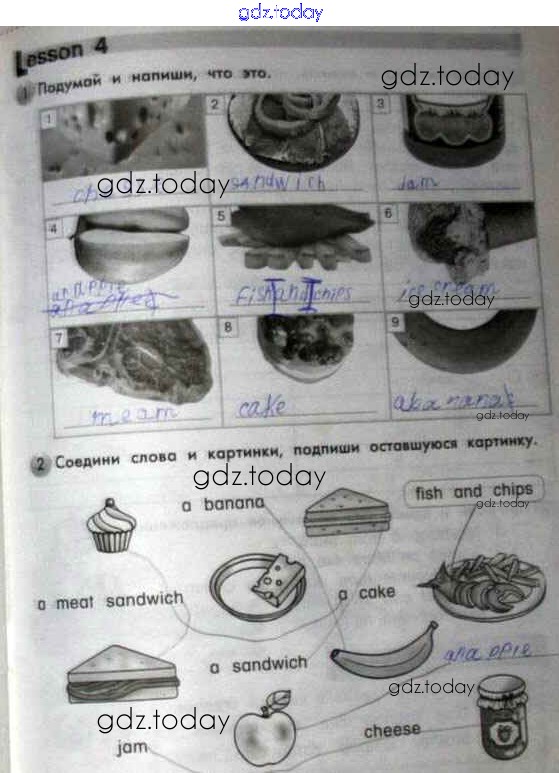 gdz.today
Lesson 4
1 Подумай и напиши, что это.
gdz.today
1
2
3
gdz.today
sandwich
Jam
4
5
6
an apple
Fish and chips
ice cream
gdz.today
7
8
9
meam
cake
a banana
gdz.today
2 Соедини слова и картинки, подпиши оставшуюся картинку.
gdz.today
a banana
fish and chips
gdz.today
a meat sandwich
a cake
a sandwich
an apple
gdz.today
gdz.today
cheese
jam